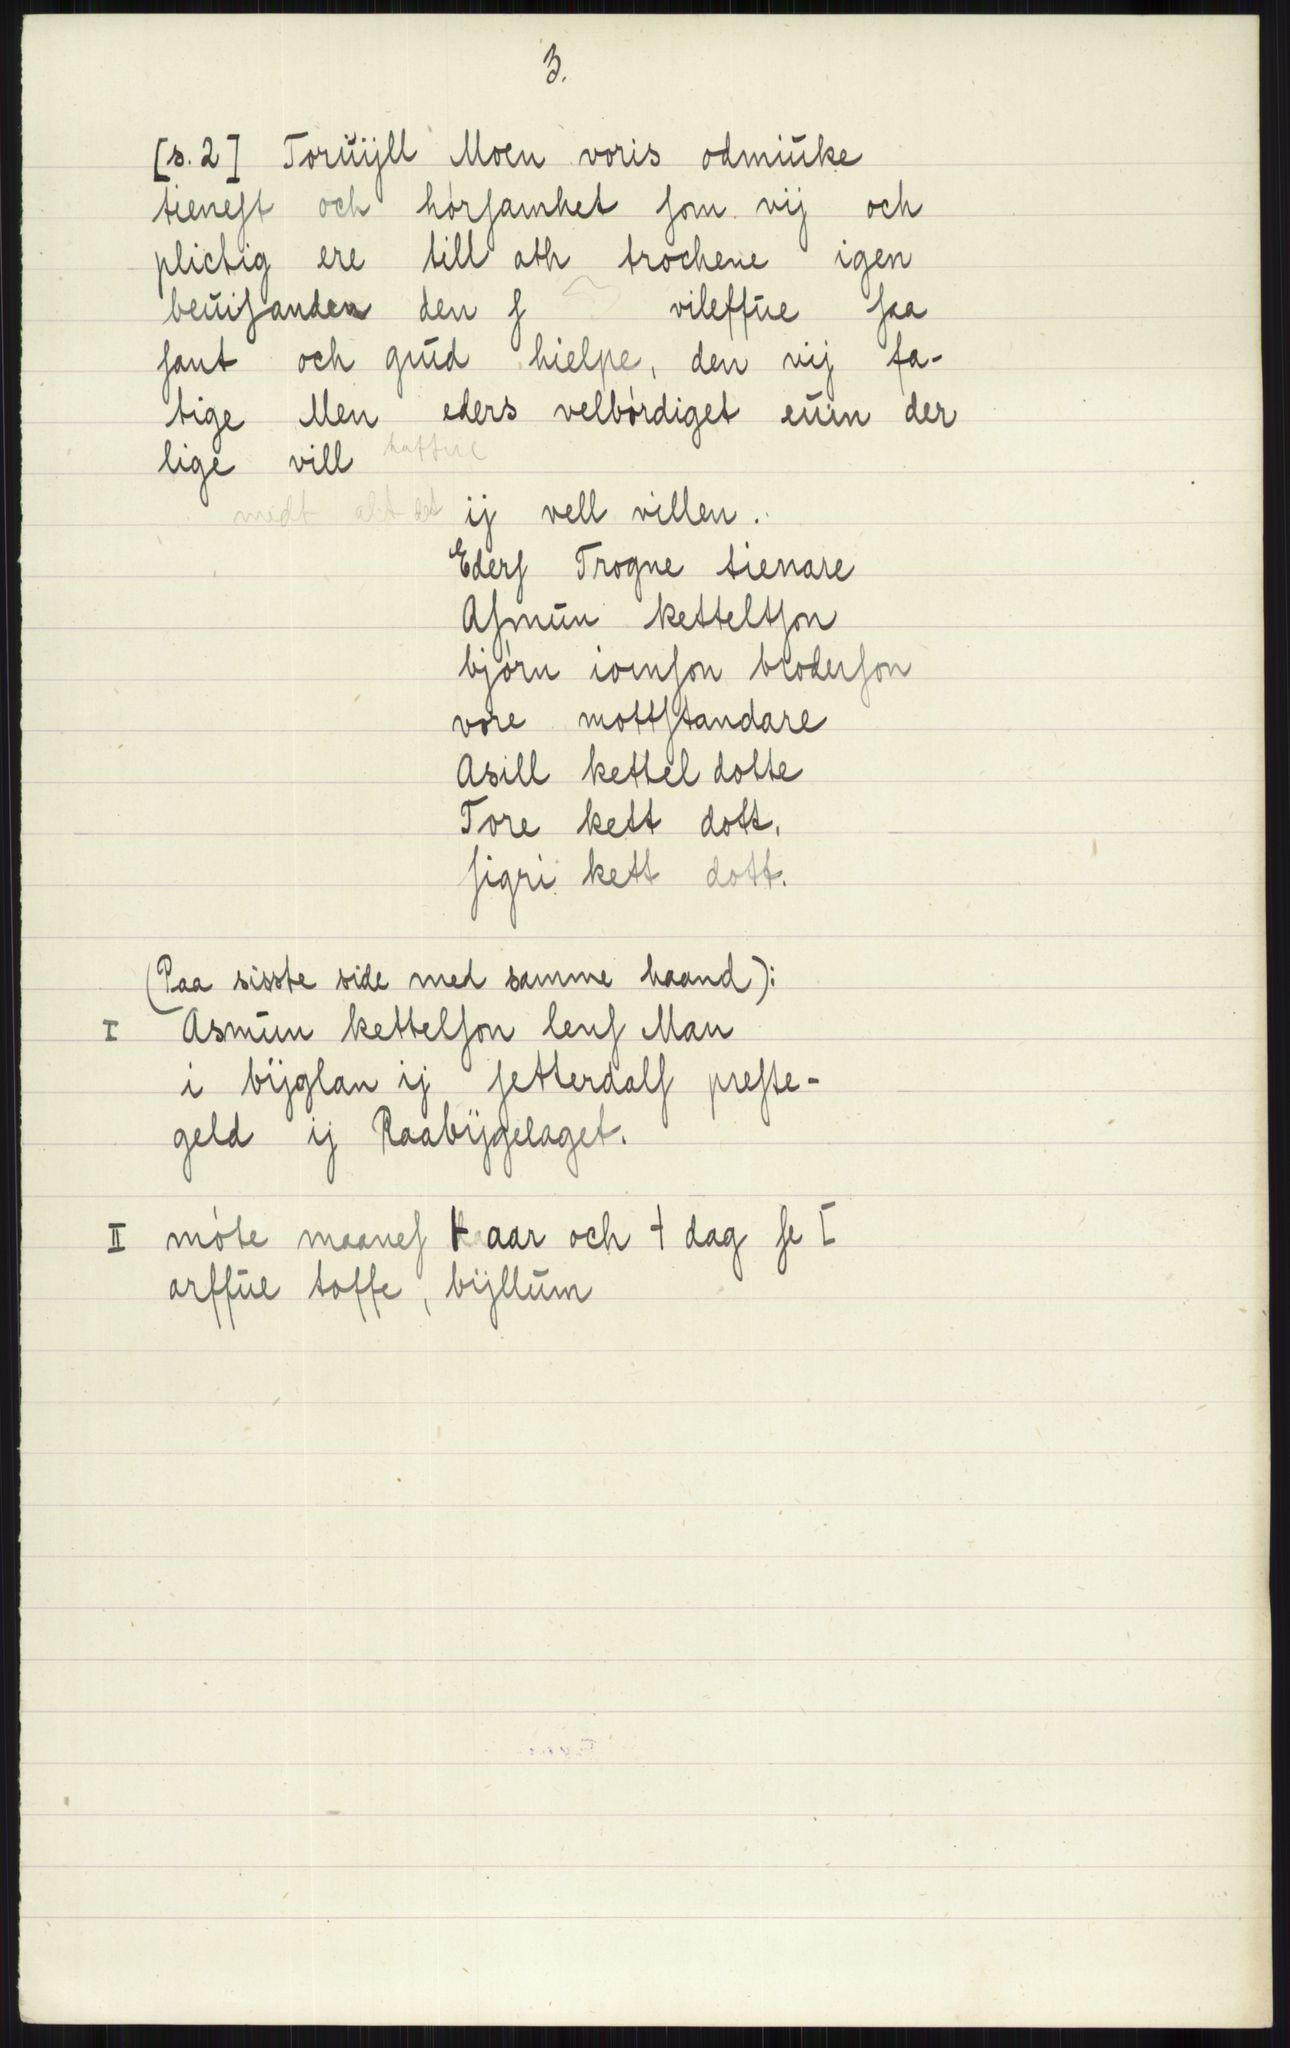 3.
[s. 2] Torŭijll Moen voris odmiŭke
tieneſt och hórſamhet ſom vij och
plictig ere till ath trochene igen
beŭiſanden den ſ vileffŭe ſaa
ſant och gŭd hielpe, den vij fa-
tige Men eders velbórdiget eŭin der
lige vill haffŭe
medt alt det ij vell villen.
Ederſ Trogne tienare
Aſmŭn kettelſon
bjórn iornſon broderſon
vore mottſtandare
Asill kettel dotte
Tore kett dott.
ſigri kett dott.
(Paa sisste side med samme haand):
I Asmŭn kettelſon lenſ Man
i bijglan ij ſetterdalſ preſte-
geld ij Raabijgelaget.
II móte maaneſ aar och † dag ſe [
arffŭe toffe, bijllŭm